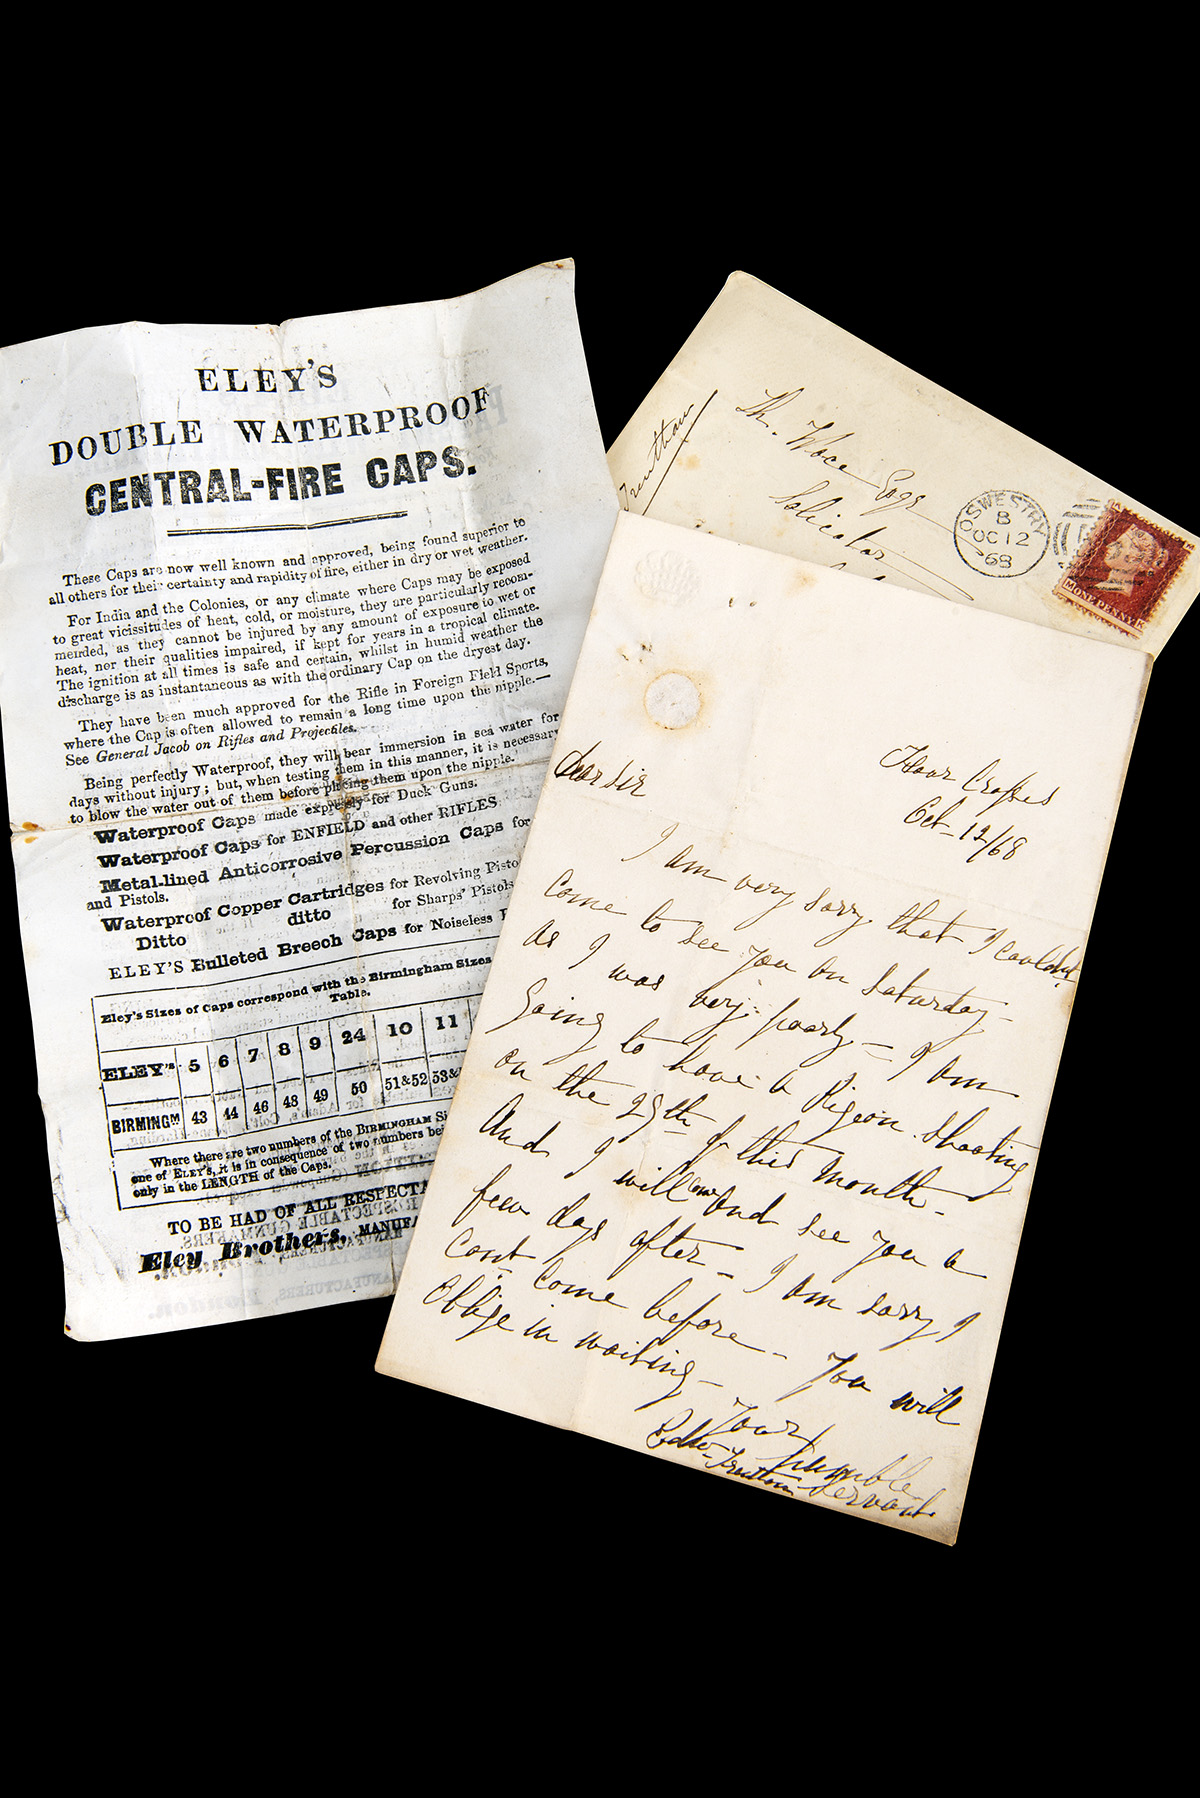 ELEY'S
DOUBLE WATERPROOF
CENTRAL-FIRE CAPS.
These Caps are now well known and approved, being found superior to
all others for their certainty and rapidity of fire, either in dry or wet weather.
For India and the Colonies, or any climate where Caps may be exposed
to great vicissitudes of heat, cold, or moisture, they are particularly recom-
mended, as they cannot be injured by any amount of exposure to wet or
heat, nor their qualities impaired, if kept for years in a tropical climate.
The ignition at all times is safe and certain, whilst in humid weather the
discharge is as instantaneous as with the ordinary Cap on the dryest day.
They have been much approved for the Rifle in Foreign Field Sports,
where the Cap is often allowed to remain a long time upon the nipple.—
See General Jacob on Rifles and Projectiles.
Being perfectly Waterproof, they will bear immersion in sea water for
days without injury; but, when testing them in this manner, it is necessary
to blow the water out of them before placing them upon the nipple.
Waterproof Caps made expressly for Duck Guns.
Waterproof Caps for ENFIELD and other RIFLES
Metal-lined Anticorrosive Percussion Caps for
and Pistols.
Waterproof Copper Cartridges for Revolving Pisto
Ditto ditto for Sharps' Pistols
ELEY'S Bulleted Breech Caps for Noiseless
Eley's Sizes of Caps correspond with the Birmingham Sizes
Table.
ELEY'S 5 6 7 8 9 24 10 11
BIRMINGM 43 44 46 48 49 50 51&52 53&
Where there are two numbers of the BIRMINGHAM Si
one of ELEY'S, it is in consequence of two numbers bei
only in the LENGTH of the Caps.
TO BE HAD OF ALL RESPECTA
Eley Brothers, MANUFA
Th. Esqr
Solicitor
OSWESTRY
B
OC 12
68
ONE PENNY
Dear Sir
Oct- 12/68
I am very sorry that I couldnt
come to see you on Saturday-
as I was very poorly - I am
going to have a Pigeon Shooting
on the 29th of this month-
And I will come and see you a
few days after - I am sorry I
cant come before - you will
oblige in waiting -
Your humble
servant
Edw.